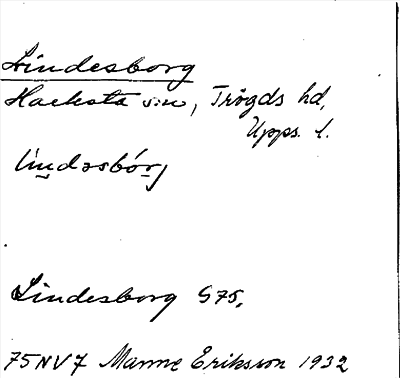 Lindesborg
Hacksta s:n, Trögds hd,
Upps. l.
lindəsbórj
Lindesborg G75,
75NV7 Manne Eriksson 1932